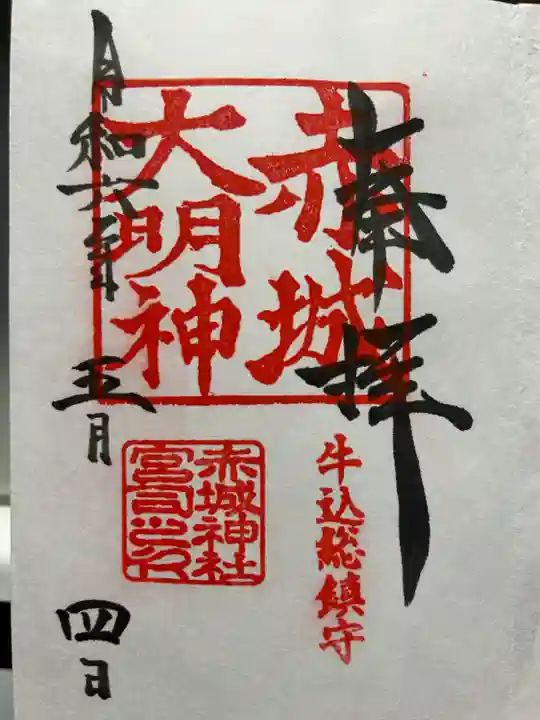 奉拝
牛込総鎮守
赤城
大明神
赤城神社
宮司之印
令和六年
五月
四日